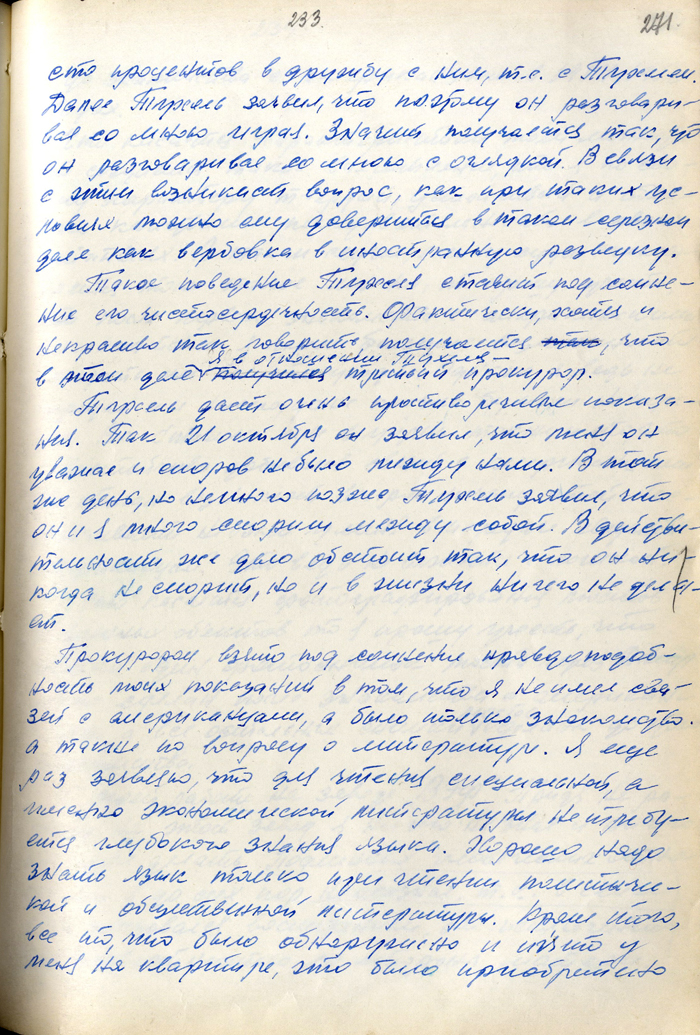 233.
271.
сто процентов в дружбу с ним, т.е. с
Далее заявил, что поэтому он разговари-
вал со мною играя. Значит получается так, что
он разговаривал со мною с оглядкой. В связи
с этим возникает вопрос, как при таких ус-
ловиях можно ему довериться в таком серезном
деле как вербовка в иностранную разведку.
Такое поведение ставит под сомне-
ние его чистосердечность. Фактически, хотя и
некрасиво так говорить получается так, что
Я в отношении
в этом деле получился третий прокурор.
дает очень противоречивые показа-
ния. Так 21 октября он заявил, что меня он
уважал и споров не было между нами. В тот
же день, но немного позже заявил, что
он и я много спорили между собой. В действи-
тельности же дело обстоит так, что он ни-
когда не спорит, но и в жизни ничего не дела-
ет.
Прокурором взято под сомнение правдоподоб-
ность моих показаний в том, что я не имел свя-
зей с американцами, а было только знакомство.
а также по вопросу о литературе. Я еще
раз заявляю, что для чтения специальной, а
именно экономической литературы не требу-
ется глубокого знания языка. Хорошо надо
знать язык только при чтении политиче-
кой и общественной литературы. Кроме того,
все то, что было обнаружено и изъято у
меня на квартире, это было приобретено